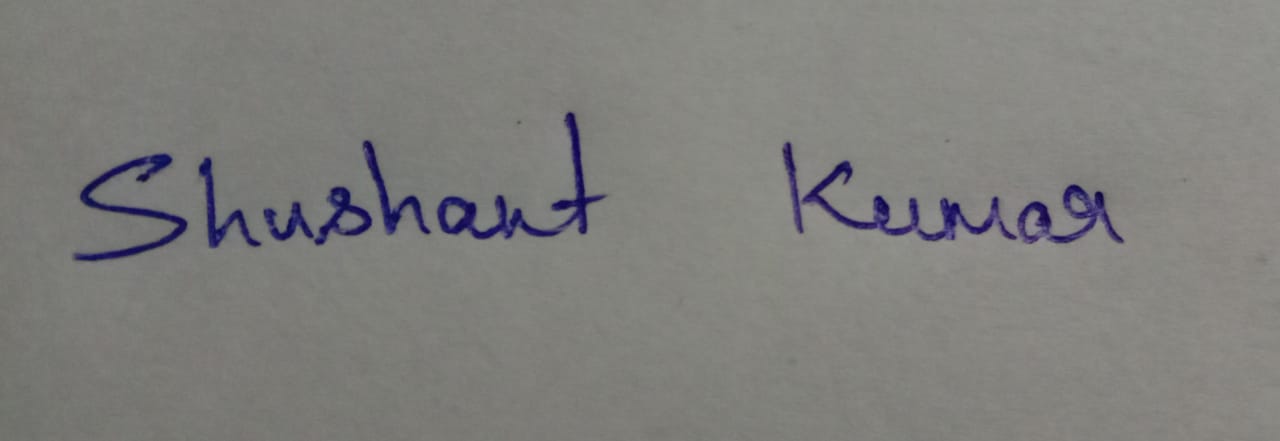 Shushant Kumar